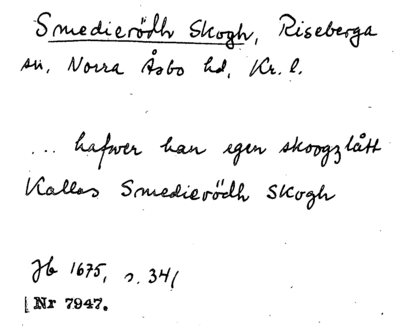 Smedierödh Skogh, Riseberga
sn, Norra Åsbo hd, Kr. l.
... hafwer han egen skoogzlått
Kallas Smedierödh Skogh
Jb 1675, s. 341
Nr 7947.